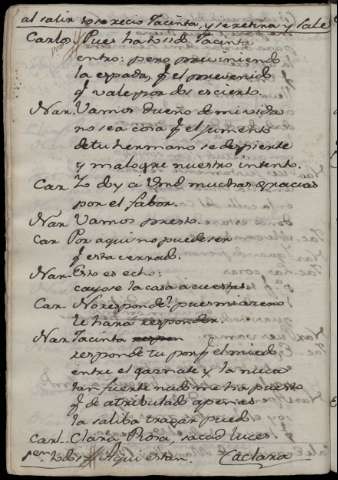 al salir se parecio Jacinta, y se retira, y sale
Carlos Pues ha tosido Jacinta
entro: pero previniendo
la espada, q.e el prevenido
q.e vale por dos es cierto.
Nar. Vamos dueño de mi vida
no sea cosa q.e el jumento
de tu hermano se despierte
y malogre nuestro intento.
Car. Yo doy a Vmd muchas gracias
por el fabor.
Nar. Vamos presto.
Car Por aqui no puede ser
q.e esta cerrado.
Nar. Esto es echo:
cayose la casa acuestas.
Car. No responde?
le hara responder.
Nar Jacinta respon
responde tu porq.e el miedo
entre el gaznate y la nuca
tan fuerte nudo me ha puesto
q.e de atribulado apenas
la saliba tragar puedo.
Carl. Clara, Rosa, sacad luces.
1.en Todos Aqui estan. Cae Clara